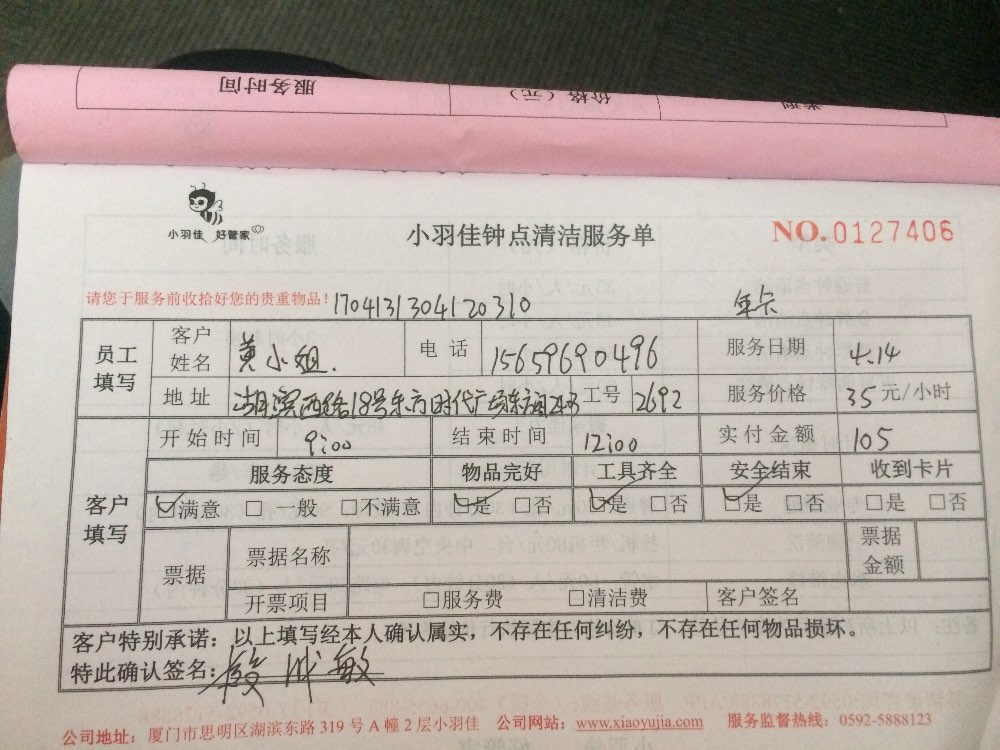 服务时间 价格（元） 类型
小羽佳 好管家
小羽佳钟点清洁服务单
NO.0127406
请您于服务前收拾好您的贵重物品！ 170413130412​0310 年卡
员工填写 客户姓名 黄小姐. 电话 15659690496 服务日期 4.14
地址 湖滨西路18号东方时代广场 工号 2692 服务价格 35元/小时
开始时间 9:00 结束时间 12:00 实付金额 105
客户填写 服务态度 物品完好 工具齐全 安全结束 收到卡片
☑满意 □一般 □不满意 ☑是 □否 ☑是 □否 ☑是 □否 □是 □否
票据 票据名称 票据金额
开票项目 □服务费 □清洁费 客户签名
客户特别承诺：以上填写经本人确认属实，不存在任何纠纷，不存在任何物品损坏。
特此确认签名：
公司地址：厦门市思明区湖滨东路319号A幢2层小羽佳 公司网站：www.xiaoyujia.com 服务监督热线：0592-5888123